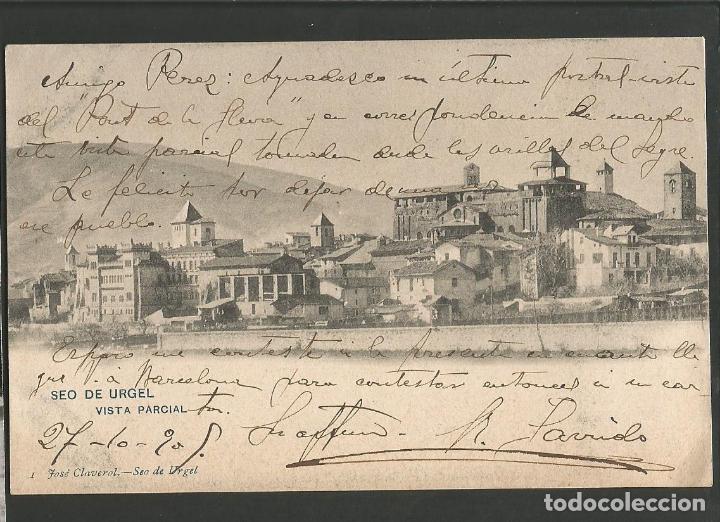 Amigo Perez: Agradesco su última postal-vista
del "Pont de la
y en correspondencia le mando
esta vista parcial tomada desde las orillas del Segre.
Le felicito por dejar de
ese pueblo.
Espero me conteste á la presente en cuanto lle
gue á Barcelona para contestar entonces á su car
ta.
SEO DE URGEL
VISTA PARCIAL
27-10-905
Su affmo.
1 José Claverol.—Seo de Urgel
todocoleccion